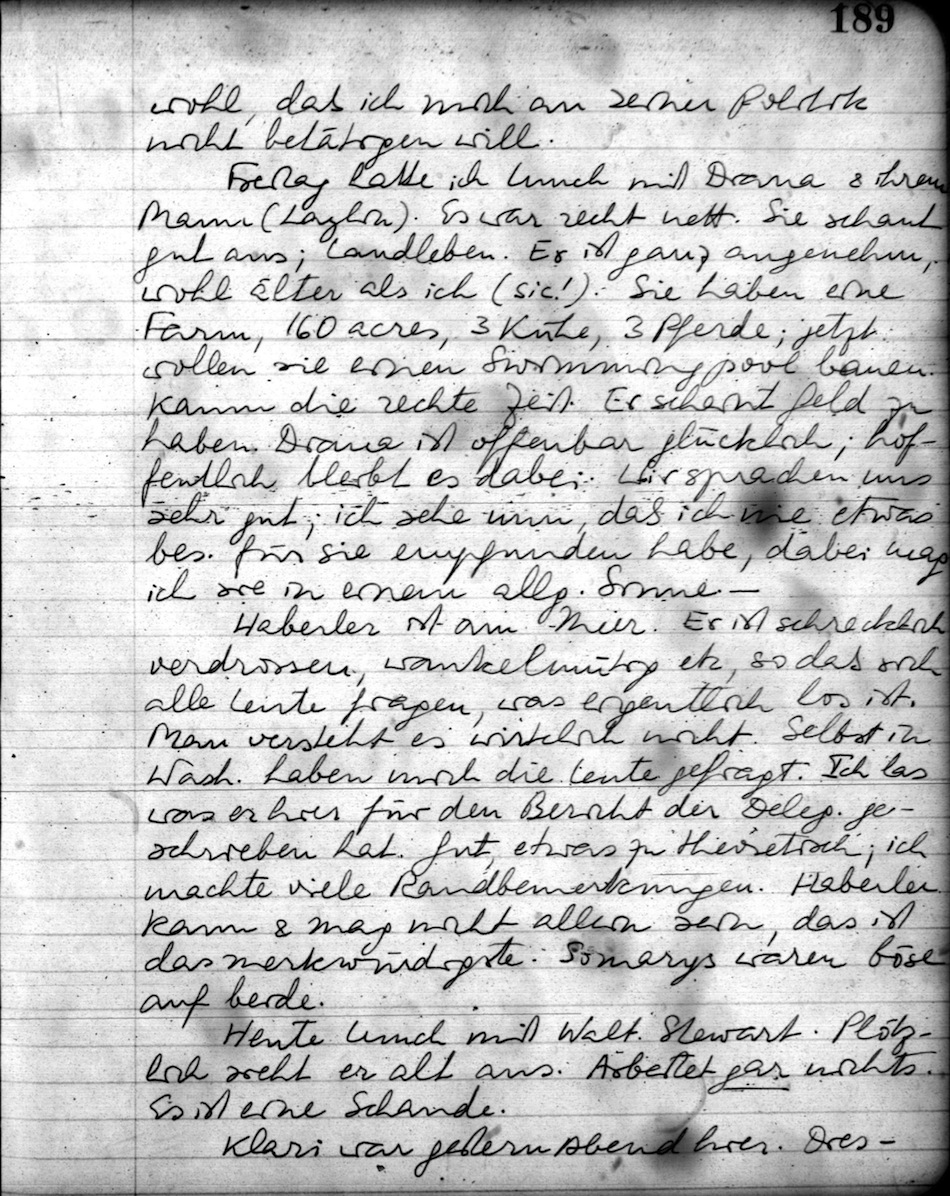 189
wohl, daß ich mich an seiner Politik
nicht betätigen will.
Freitag hatte ich lunch mit Diana & ihrem
Mann (Laylin). Es war recht nett. Sie schaut
gut aus; Landleben. Er ist ganz angenehm,
wohl älter als ich (sic!). Sie haben eine
Farm, 160 acres, 3 Kühe, 3 Pferde; jetzt
wollen sie einen Swimmingpool bauen.
Kaum die rechte Zeit. Er scheint Geld zu
haben. Diana ist offenbar glücklich; hof-
fentlich bleibt es dabei. Wir sprachen uns
sehr gut; ich sehe nun, daß ich nie etwas
bes. für sie empfunden habe, dabei mag
ich sie in einem allg. Sinne. —
Haberler ist am Meer. Er ist schrecklich
verdrossen, wankelmütig etc, so daß sich
alle Leute fragen, was eigentlich los ist.
Man versteht es wirklich nicht. Selbst in
Wash. haben mich die Leute gefragt. Ich las
was er hier für den Bericht der Deleg. ge-
schrieben hat. Gut, etwas zu theoretisch; ich
machte viele Randbemerkungen. Haberler
kann & mag nicht allein sein, das ist
das merkwürdigste. Somarys waren böse
auf beide.
Heute lunch mit Walt. Stewart. Plötz-
lich sieht er alt aus. Arbeitet gar nichts.
Es ist eine Schande.
Klari war gestern Abend hier. Dies-